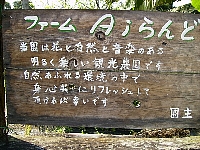 ファーム Aiらんど
当園は花と自然と音楽のある
明るく楽しい観光農園です
自然あふれる環境の中で
身心共にリフレッシュして
頂ければ幸いです
園主